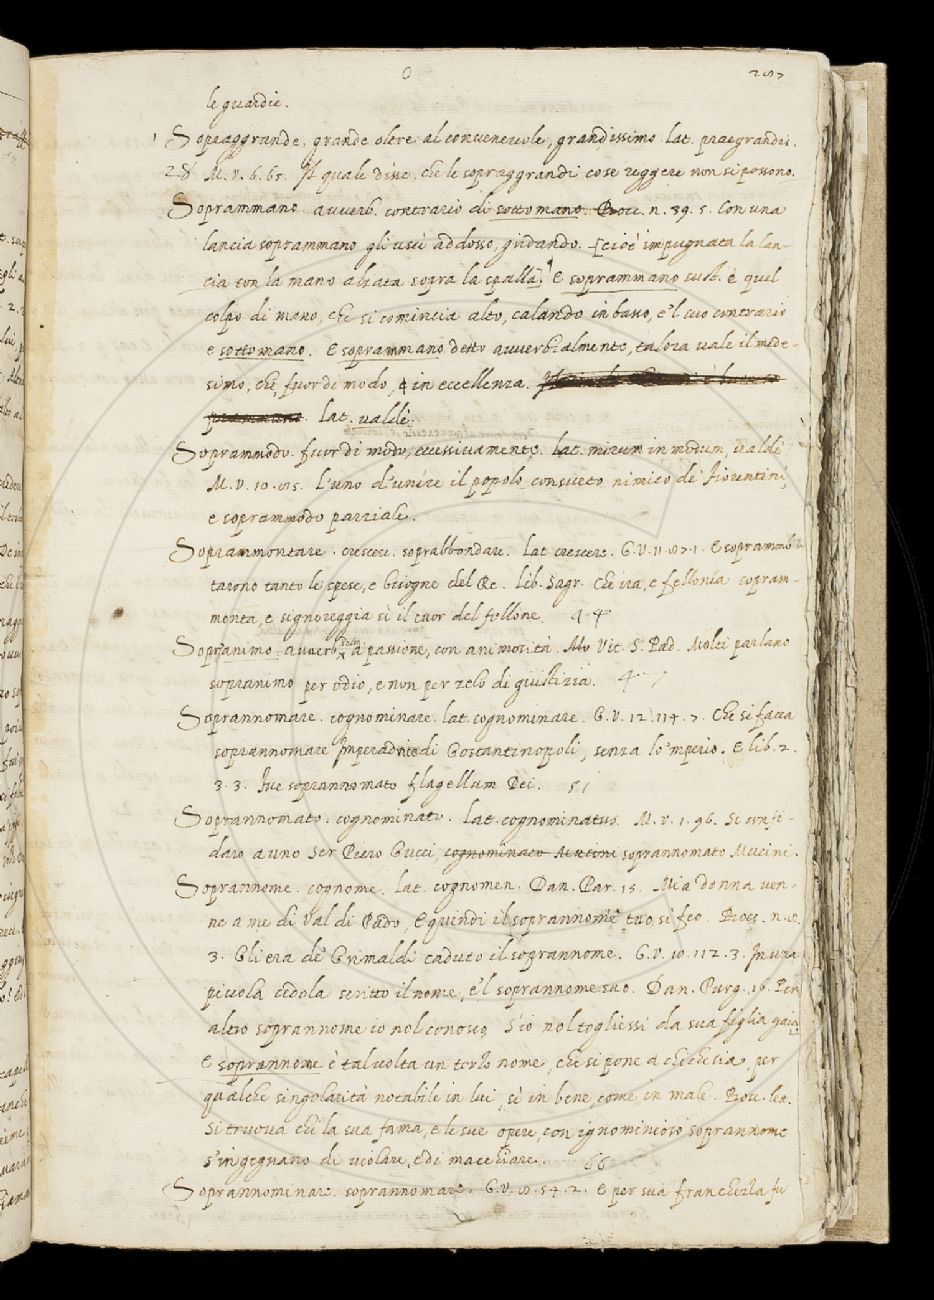 le guardie.
Sopraggrande. grande oltre al convenevole, grandissimo. lat. praegrandis.
28 M. V. 6. 65. Il quale disse, che le sopraggrandi cose reggere non si possono.
Soprammano. avverb. contrario di sottomano. Bocc. n. 39. 5. Con una
lancia soprammano gli uscì addosso, gridando. [cioè impugnata la lan-
cia con la mano alzata sopra la spalla] E soprammano sust. è quel
colpo di mano, che si comincia alto, calando in basso, e 'l suo contrario
e sottomano. E soprammano detto avverbialmente, talora vale il mede-
simo, che, fuor di modo, in eccellenza.
Lat. valdè.
Soprammodo. fuor di modo, eccessivamente. lat. mirum in modum, valdè
M. V. 10. 25. L'uno d'unire il popolo consueto nimico de' Fiorentini,
e soprammodo parziale.
Soprammontare. crescere. soprabbondare. lat. crescere. G. V. 11. 87. 1. E soprammon-
tarono tanto le spese, e bisogne del Re. lib. Sagr. Che ira, e fellonia sopram-
monta, e signoreggia sì il cuor del fellone. 44
Sopranimo. avverb. a passione, con animosità. Vit. S. Pad. Molti parlano
sopranimo per odio, e non per zelo di giustizia. 47
Soprannomare. cognominare. lat. cognominare. G. V. 12. 114. 7. Che si facea
soprannomare Imperadrice di Costantinopoli, senza lo 'mperio. E lib. 2.
3. 3. Fue soprannomato flagellum Dei. 51
Soprannomato. cognominato. Lat. cognominatus. M. V. 1. 96. Si confi-
daro a uno Ser Piero Gucci, cognominato Mucini soprannomato Mucini.
Soprannome. cognome. lat. cognomen. Dan. Par. 15. Mia donna ven-
ne a me di Val di Pado, E quindi il soprannome tuo si feo. Bocc. n. 8.
3. Gli era de' Grimaldi caduto il soprannome. G. V. 10. 112. 3. In una
picciola cedola scritto il nome, e 'l soprannome suo. Dan. Purg. 16. Per
altro soprannome io nol conosco, S'io nol togliessi da sua figlia gaia.
E soprannome è talvolta un terzo nome, che si pone a chicchesia, per
qualche singolarità notabile in lui, sè in bene, come in male. Bocc. let.
Si truova chi la sua fama, e le sue opere, con ignominioso soprannome
s'ingegnano di violare, e di macchiare. 66
Soprannominare. soprannomare. G. V. 8. 54. 2. E per sua franchezza fu